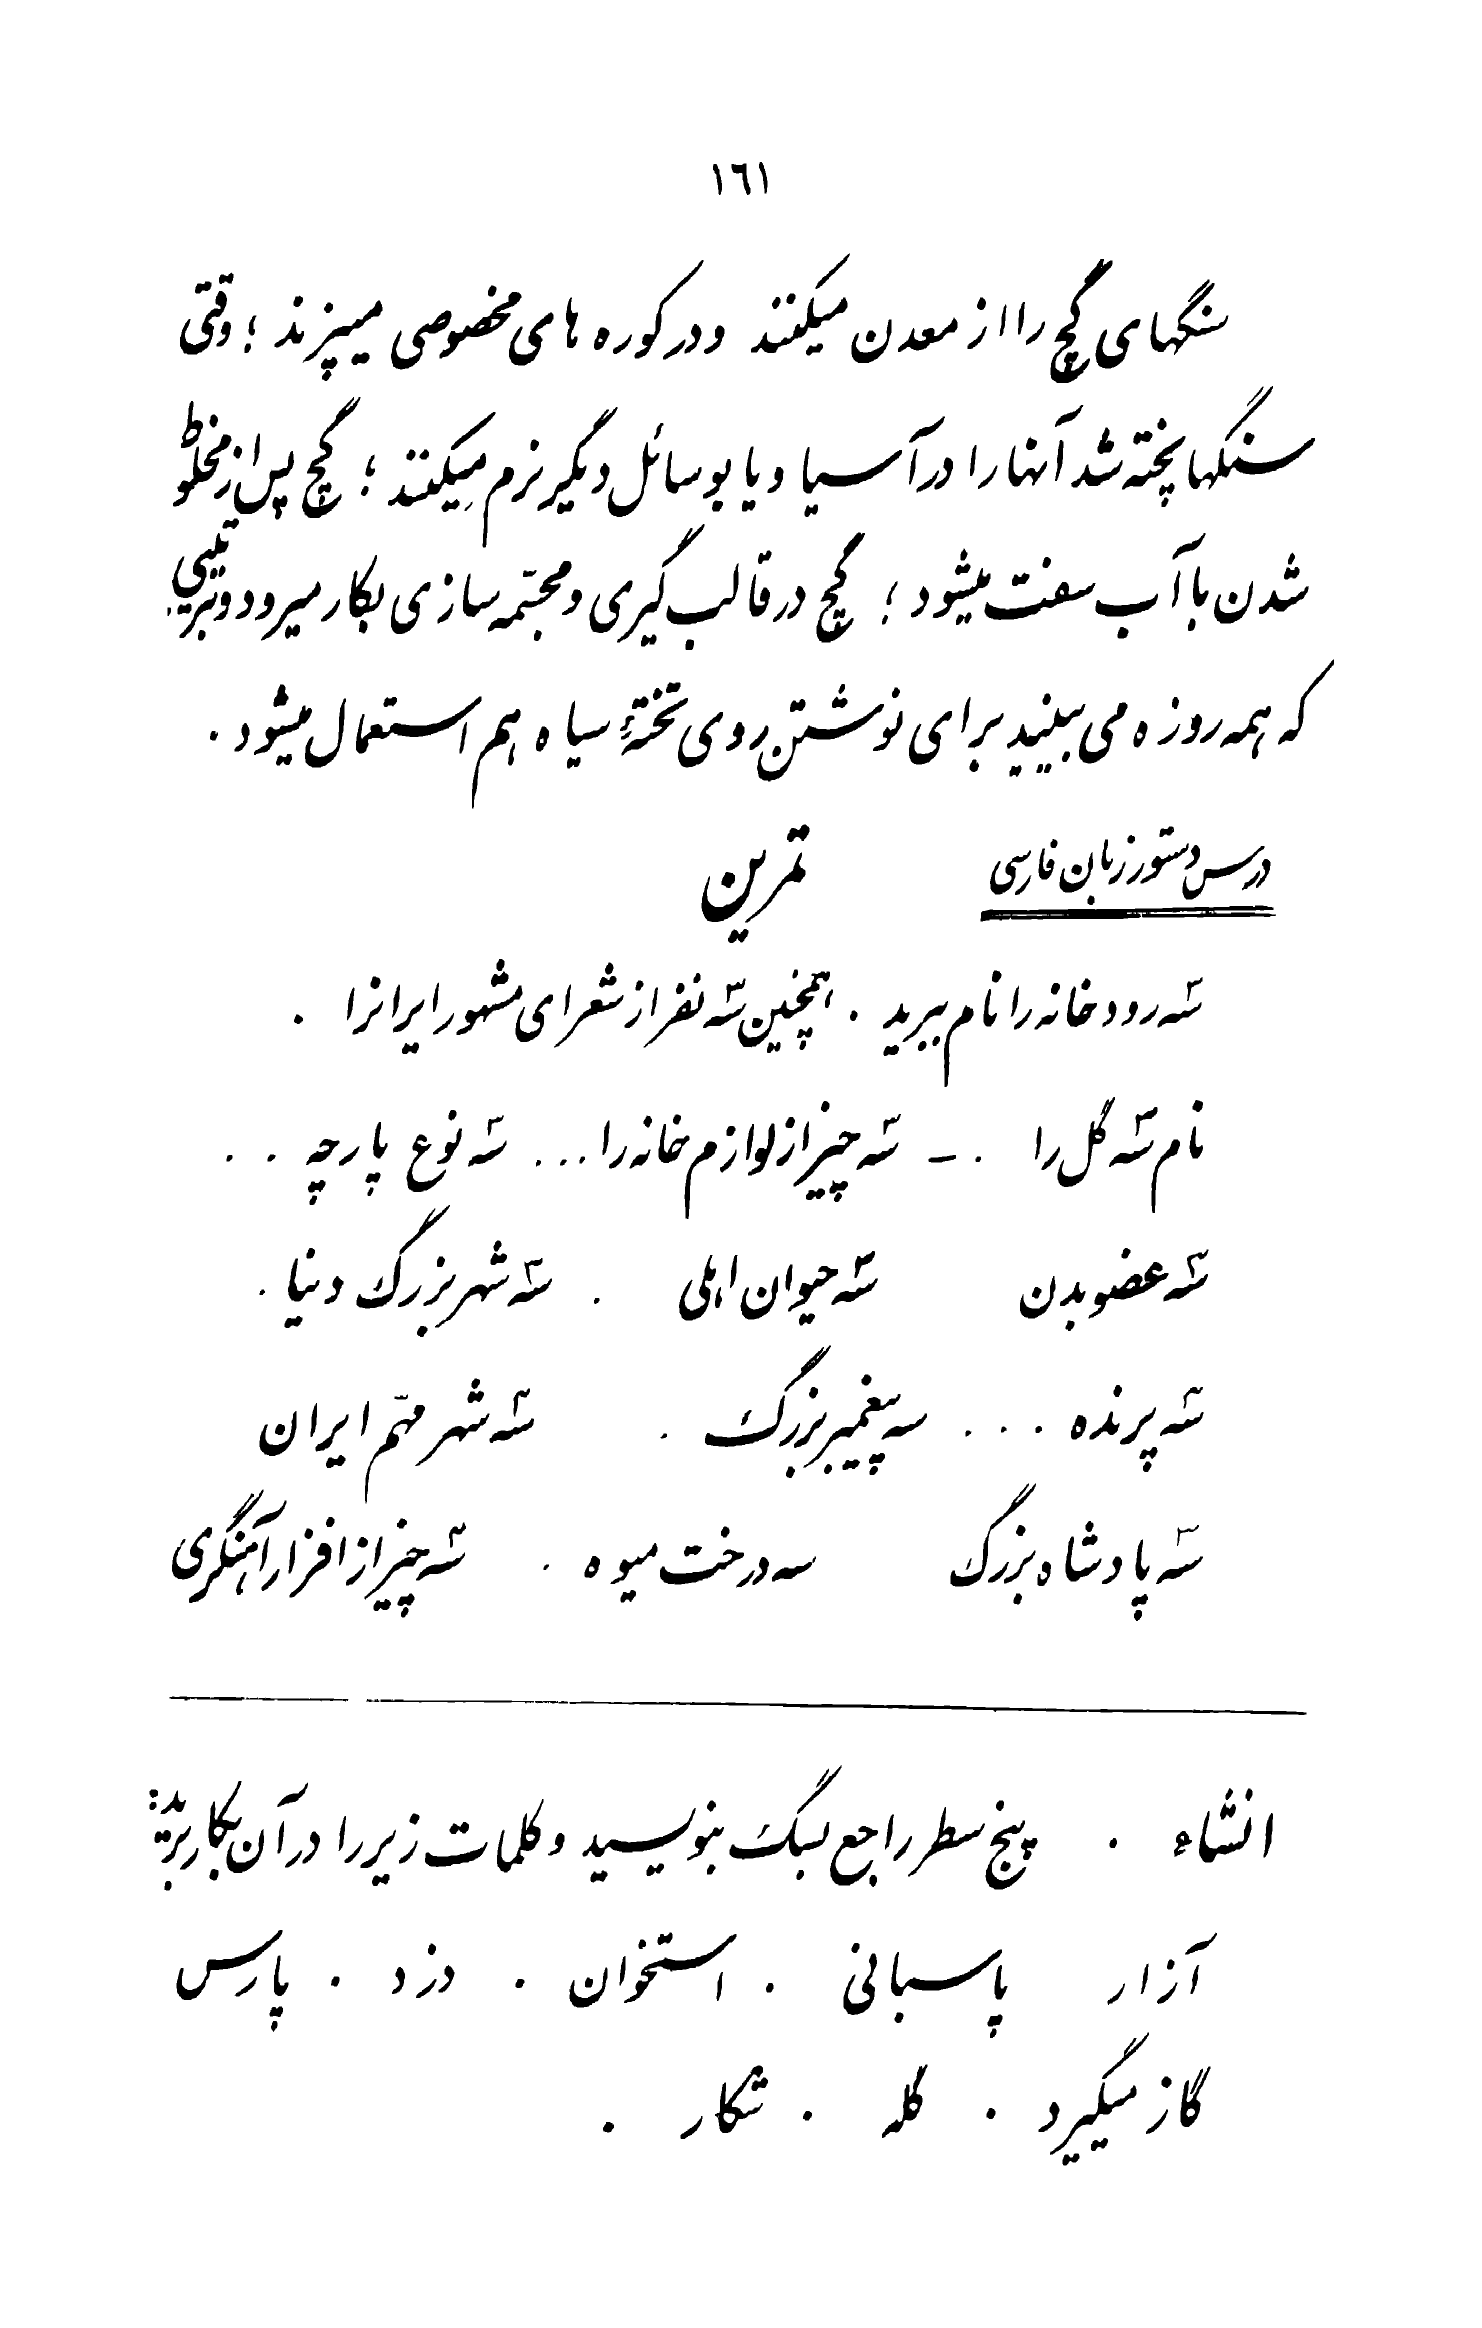 ١٦١
سنگهای گچ را از معدن میکنند و در کوره های مخصوصی میپزند ؛ وقتی
سنگها پخته شد آنها را در آسیا و یا بوسائل دیگر نرم میکنند ؛ گچ پس از مخلوط
شدن با آب سفت میشود ؛ گچ در قالب گیری و مجسّمه سازی بکار میرود و بترتیبی
که همه روزه می بینید برای نوشتن روی تختهٔ سیاه هم استعمال میشود .
درس دستور زبان فارسی
تمرین
سه رودخانه را نام ببرید . همچنین سه نفر از شعرای مشهور ایرانرا .
نام سه گل را . ـ سه چیز از لوازم خانه را ... سه نوع پارچه . .
سه عضو بدن سه حیوان اهلی . سه شهر بزرگ دنیا .
سه پرنده . . . سه پیغمبر بزرگ . سه شهر مهّم ایران
سه پادشاه بزرگ سه درخت میوه . سه چیز از افزار آهنگری
انشاء . پنج سطر راجع بسگ بنویسید و کلمات زیر را در آن بکار برید :
آزار پاسبانی . استخوان . دزد . پارس
گاز میگیرد . گله . شکار .